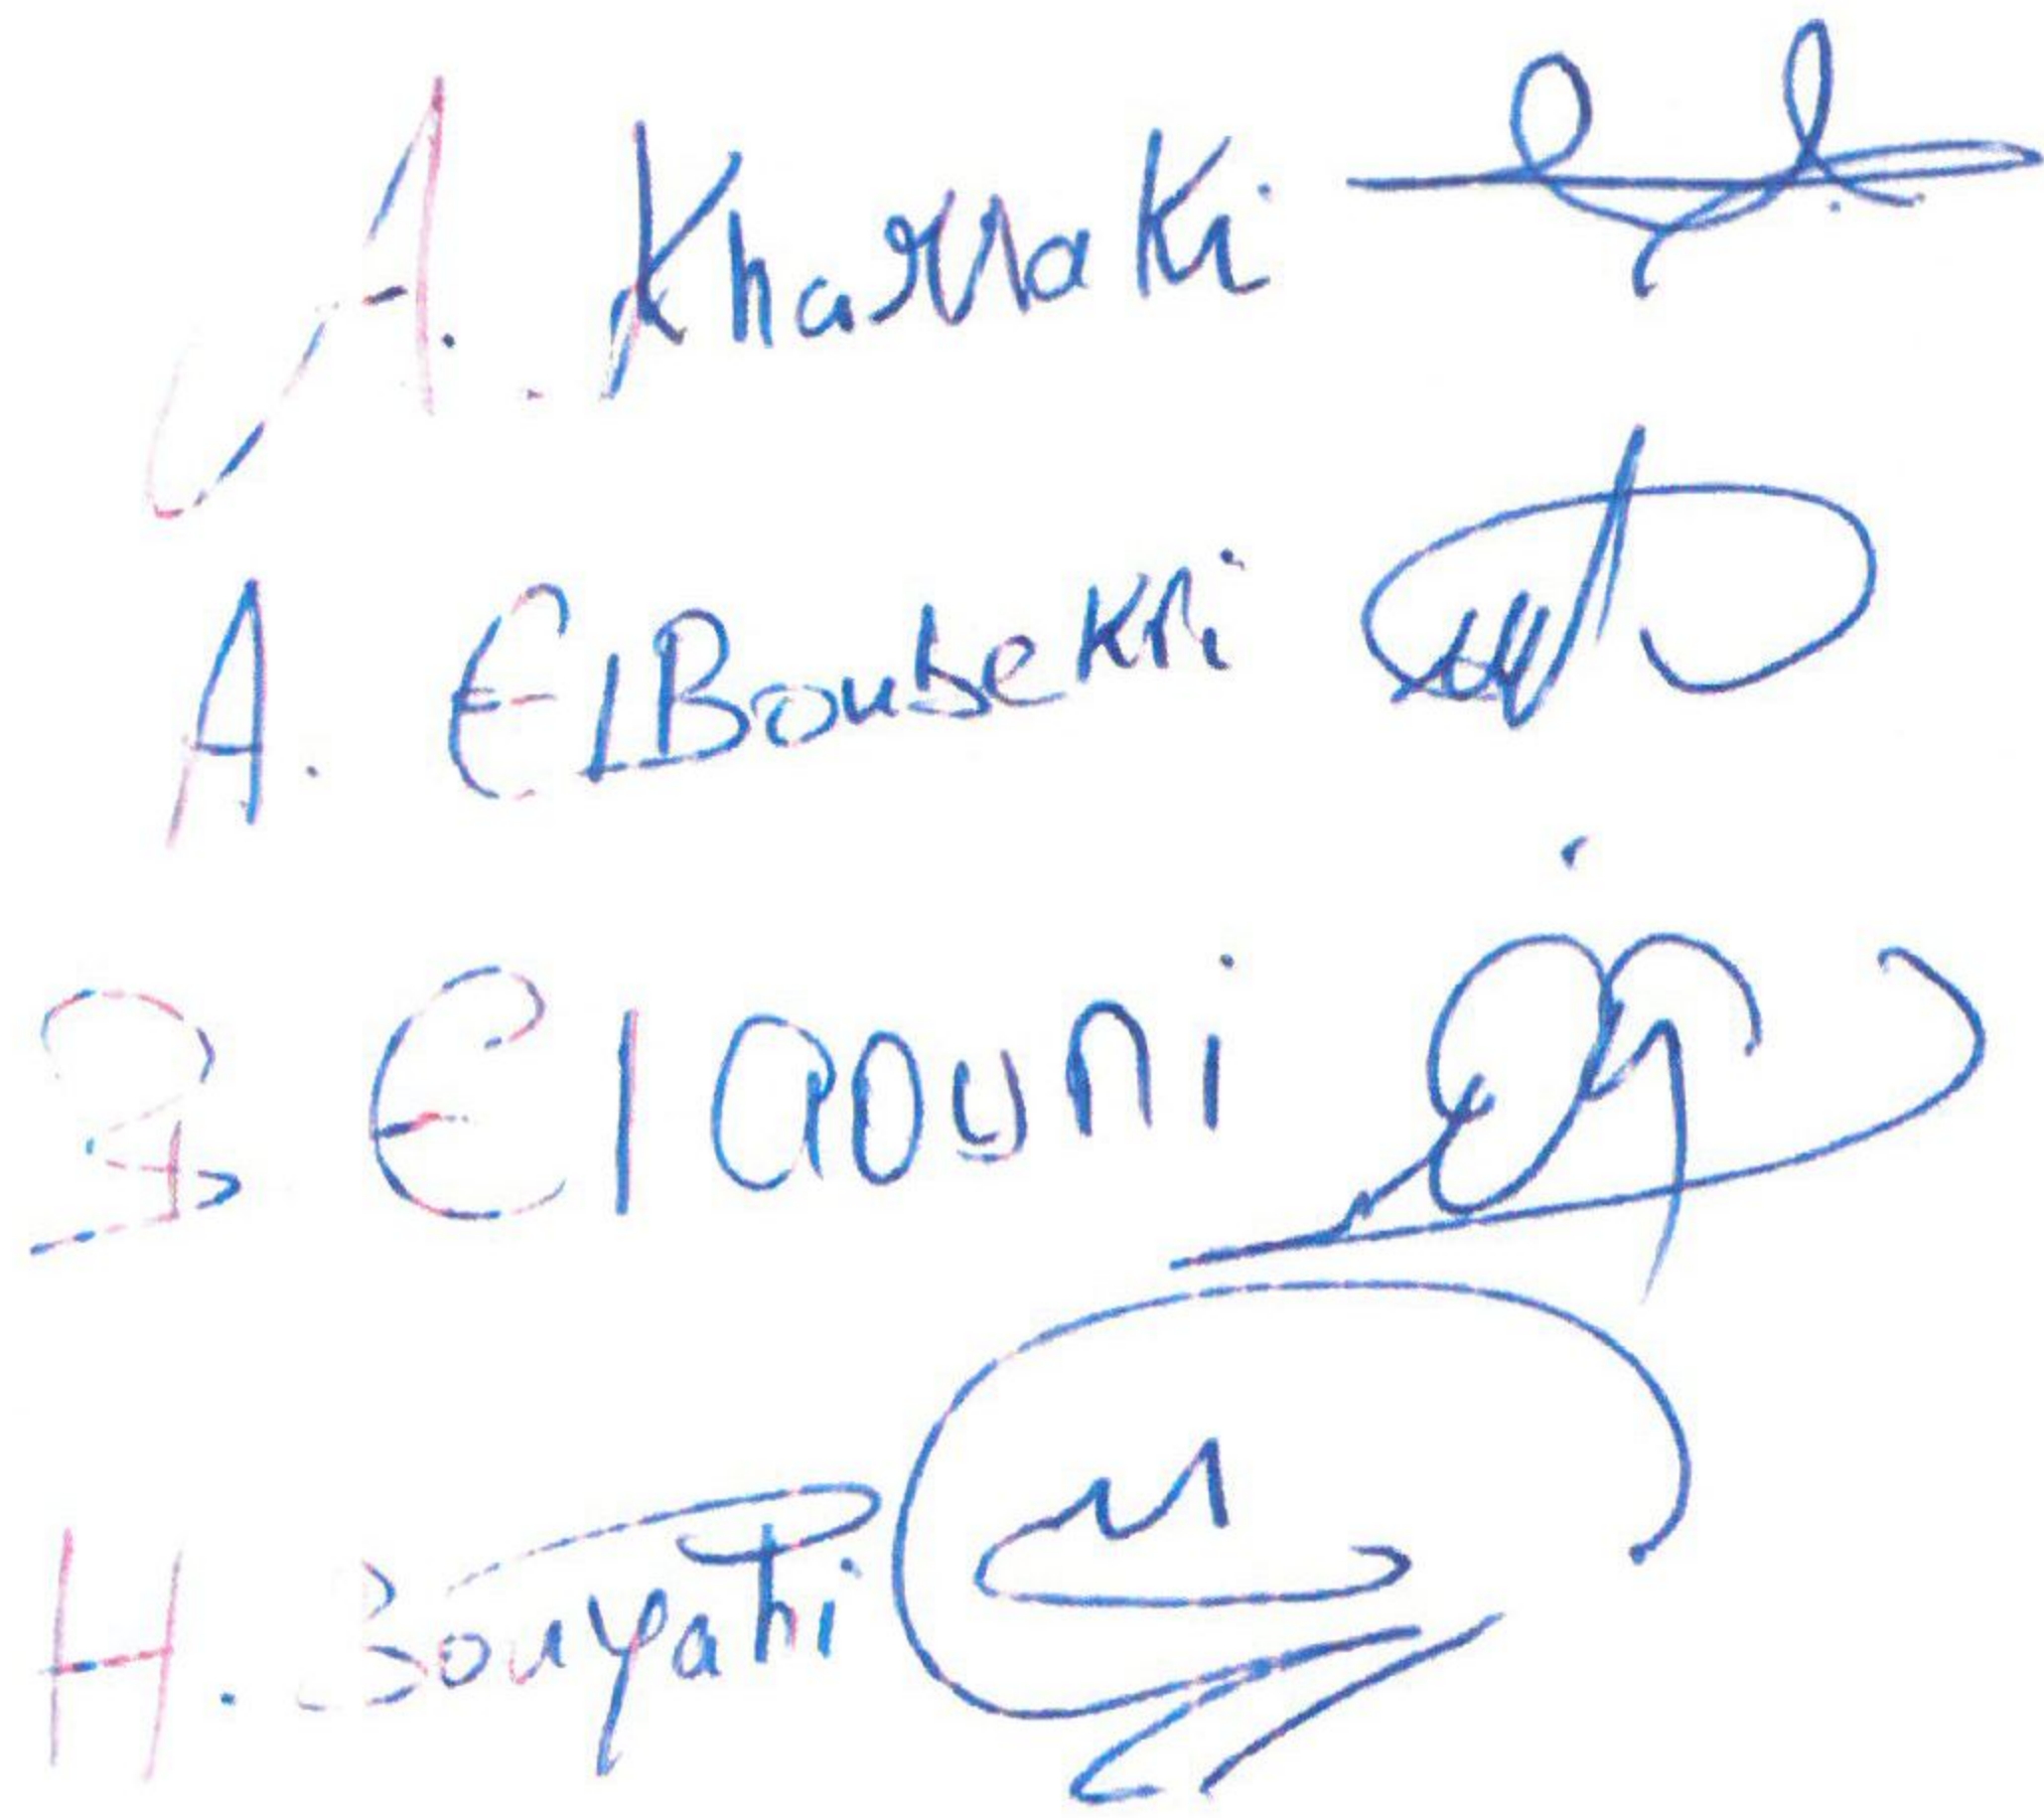 A. Kharraki
A. El Boubekri
El aouni
H. Bouyahi